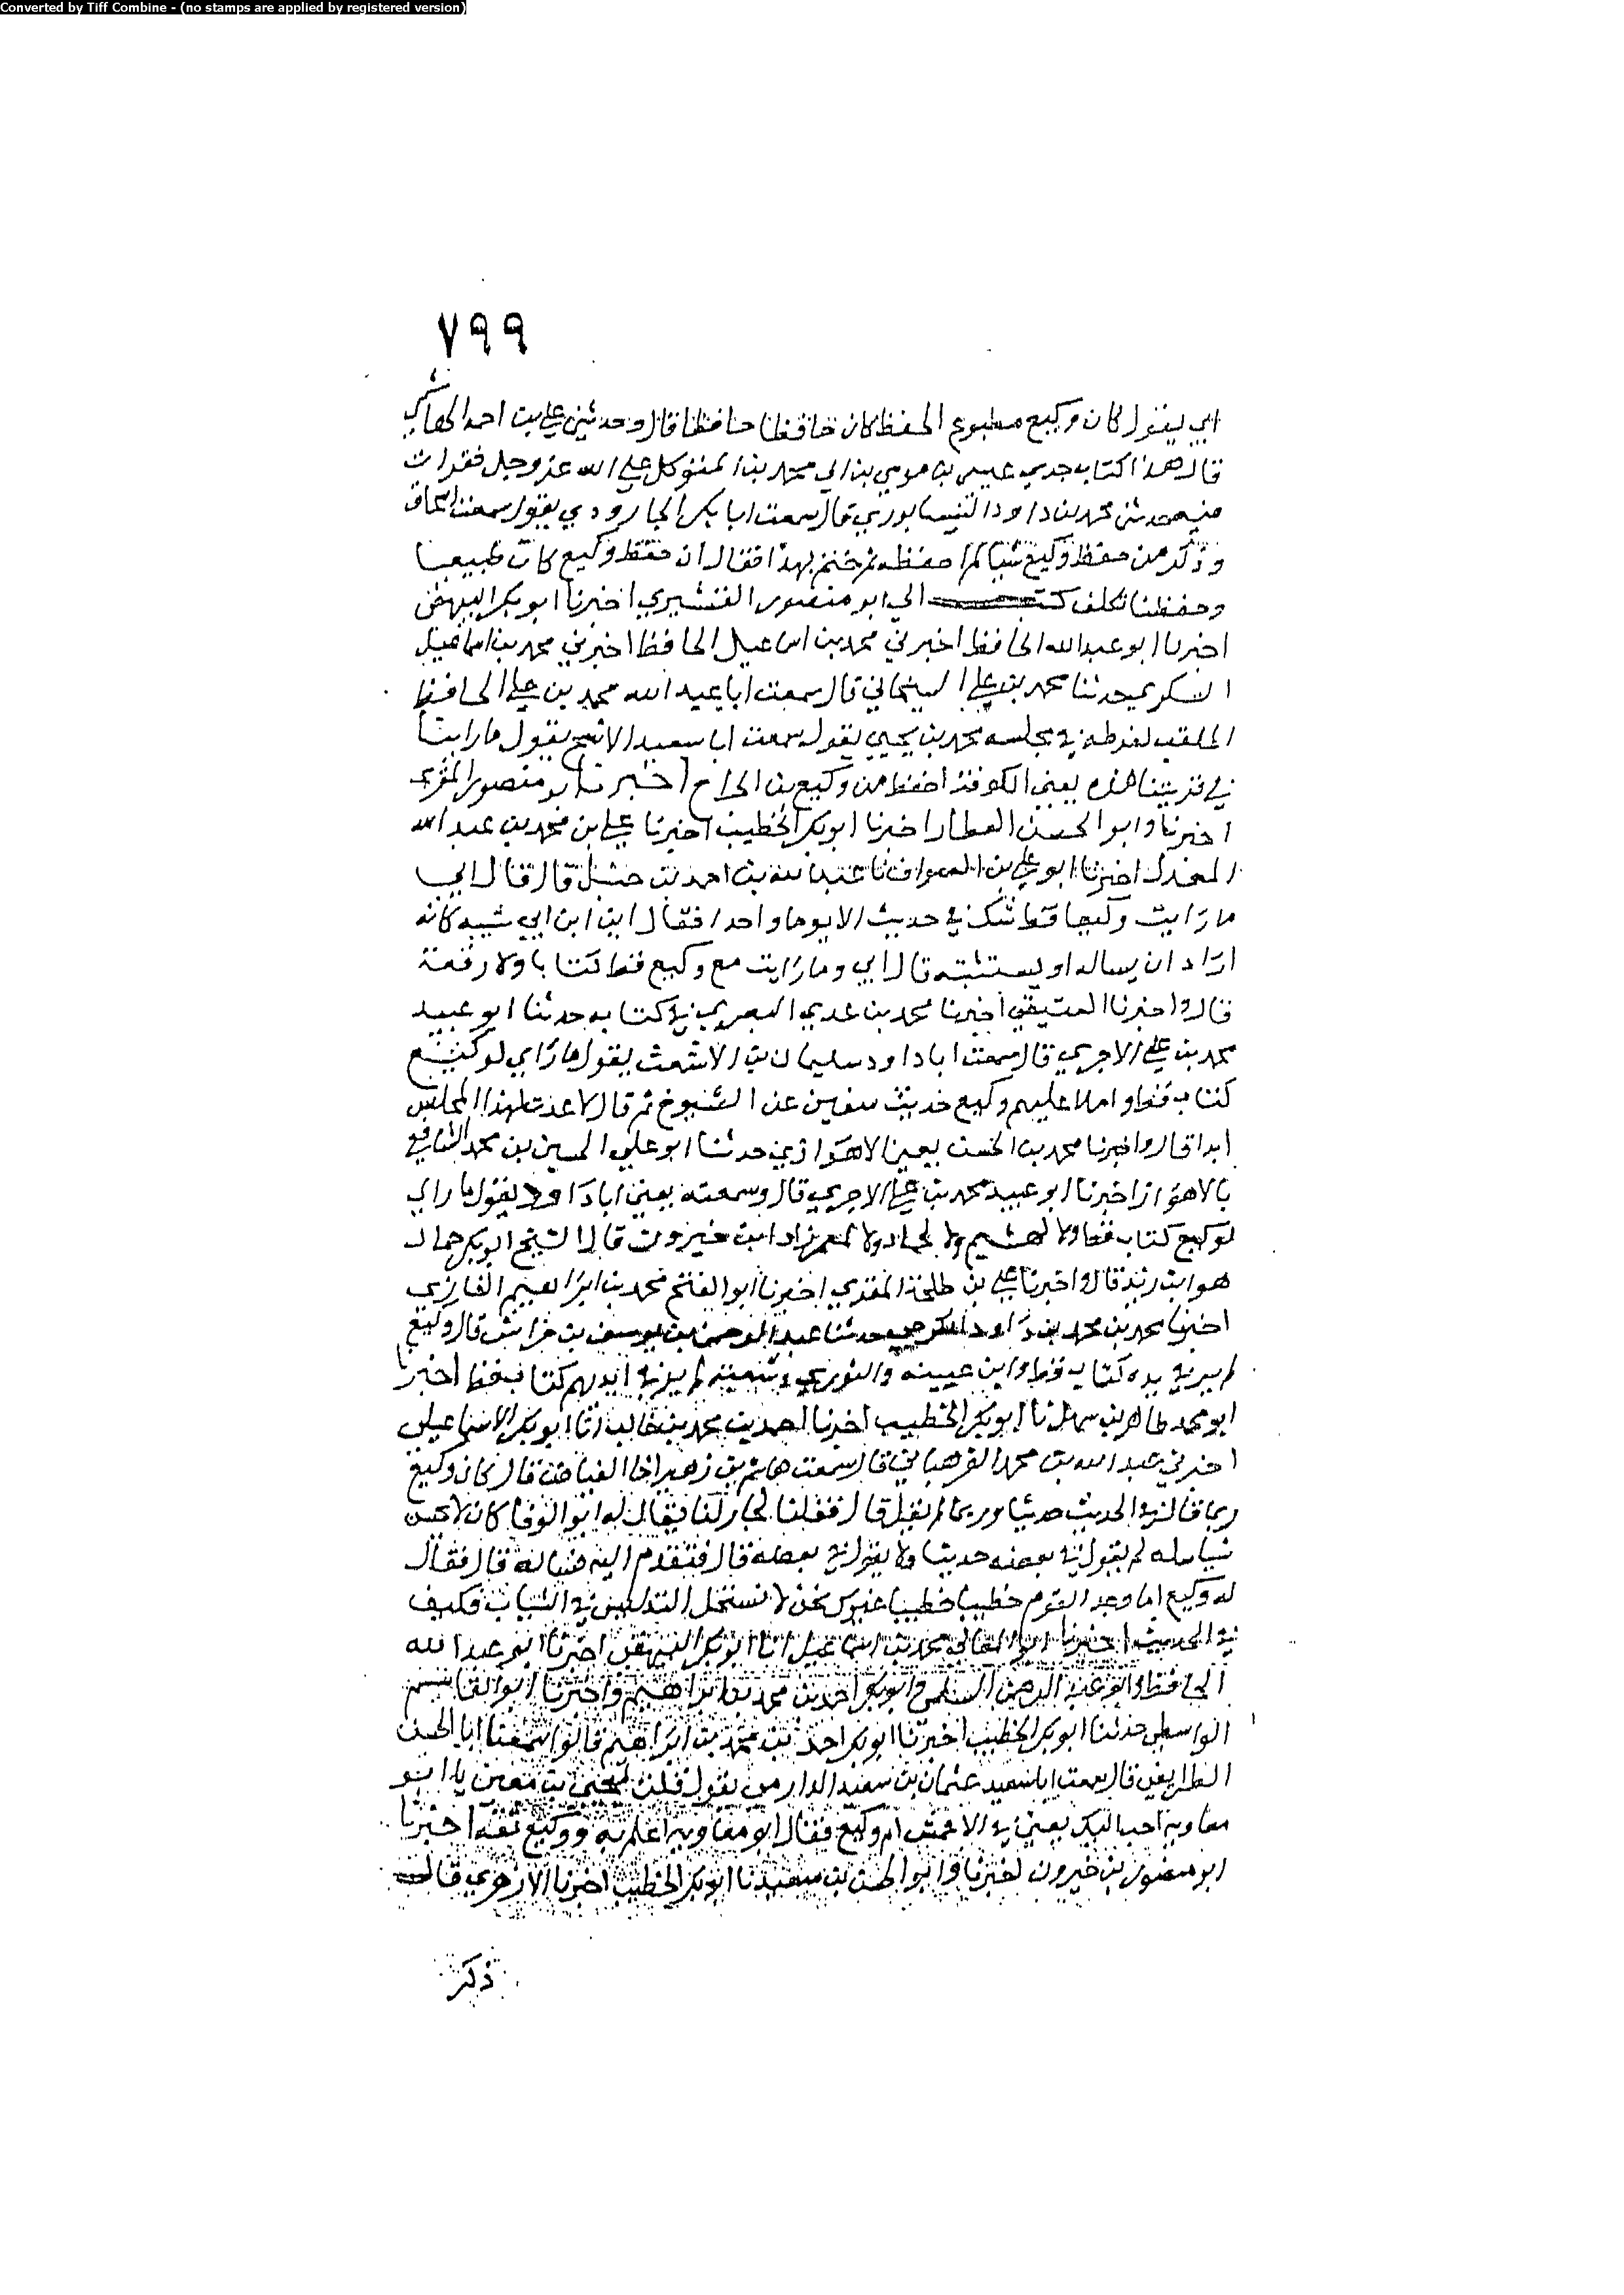 Converted by Tiff Combine - (no stamps are applied by registered version)
٧٩٩
ابي يقول كان وكيع مطبوع الحفظ كان حافظا حافظا قال وحدثني علي بن احمد الهاشمي
قال هذا كتاب جدي عيسى بن موسى بن ابي محمد بن المتوكل على الله عز وجل فقرات
فيه حدثني محمد بن داود النيسابوري قال سمعت ابا بكر الجارودي يقول سمعت اسحاق
وذكر من حفظ وكيع شيا لم احفظه ثم ختم بهذا فقال ان حفظ وكيع كان طبيعيا
وحفظنا تكلف كتب الي ابو منصور القشيري اخبرنا ابو بكر البيهقي
اخبرنا ابو عبد الله الحافظ اخبرني محمد بن اسماعيل الحافظ اخبرني محمد بن اسماعيل
السكري حدثنا محمد بن علي قال سمعت ابا عبد الله محمد بن علي الحافظ
الملقب في مجلسه محمد بن يحيى يقول سمعت ابا سعيد الاشج يقول ما راينا
في قريتنا هذه يعني الكوفة احفظ من وكيع بن الجراح اخبرنا ابو منصور المقرى
اخبرنا وابو الحسن العطار اخبرنا ابو بكر الخطيب اخبرنا علي بن محمد بن عبد الله
المعدل اخبرنا ابو علي بن الصواف نا عبد الله بن احمد بن حنبل قال قال ابي
ما رايت وكيعا قط شك في حديث الا يوما واحدا فقال اين ابن ابي شيبه كانه
اراد ان يساله او يستثبته قال ابي وما رايت مع وكيع قط كتابا ولا رقعة
قال واخبرنا العتيقي اخبرنا محمد بن عدي البصري في كتابه حدثنا ابو عبيد
محمد بن علي الاجري قال سمعت ابا داود سليمان بن الاشعث يقول ما راي لوكيع
كتاب قط واملا عليهم وكيع حديث سفين عن الشيوخ ثم قال لا عدت لهذا المجلس
ابدا قال واخبرنا محمد بن الحسن يعني الاهوازي حدثنا ابو علي الحسين بن محمد الشافعي
بالاهواز اخبرنا ابو عبيد محمد بن علي الاجري قال وسمعته يعني ابا داود يقول ما راي
لوكيع كتاب قط ولا لهشيم ولا لحماد ولا لمعمر زاد ابن خيرون قال الشيخ ابو بكر حماد
هو ابن زيد قال واخبرنا علي بن طلحة المقري اخبرنا ابو الفتح محمد بن ابراهيم الغازي
اخبرنا محمد بن محمد بن داود الكرجي حدثنا عبد الرحمن بن يوسف بن خراش قال وكيع
لم ير في يده كتاب قط وابن عيينه والثوري وشعبة لم ير في ايديهم كتاب قط اخبرنا
ابو محمد طاهر بن سهل نا ابو بكر الخطيب اخبرنا احمد بن محمد بن غالب انا ابو بكر الاسماعيلي
اخبرني عبد الله بن محمد الفرهياني قال سمعت هاشم بن زهير اخا الفياض قال كان وكيع
ربما قال في الحديث حدثنا وربما لم يقل قال فقلنا لجار لنا يقال له ابو الوفا كان لا يحسن
شيا سله لم يقول في بعضه حدثنا ولا يقول في بعضه قال فتقدم اليه فساله قال فقال
له وكيع اما وجد القوم خطيبا خطيبا غيرك نحن لا نستحل التدليس في الثياب فكيف
في الحديث اخبرنا ابو المعالي محمد بن اسماعيل انا ابو بكر البيهقي اخبرنا ابو عبد الله
الحافظ وابو عبد الرحمن السلمي وابو بكر احمد بن محمد بن ابراهيم واخبرنا ابو القاسم
الواسطي حدثنا ابو بكر الخطيب اخبرنا ابو بكر احمد بن محمد بن ابراهيم قالوا سمعنا ابا الحسن
الطرايفي قال سمعت ابا سعيد عثمان بن سعيد الدارمي يقول قلت ليحيى بن معين يا ابو
معاوية احب اليك يعني في الاعمش ام وكيع فقال ابو معاوية اعلم به ووكيع ثقة اخبرنا
ابو منصور بن خيرون اخبرنا وابو الحسن بن سعيد نا ابو بكر الخطيب اخبرنا الازهري قال
ذكر